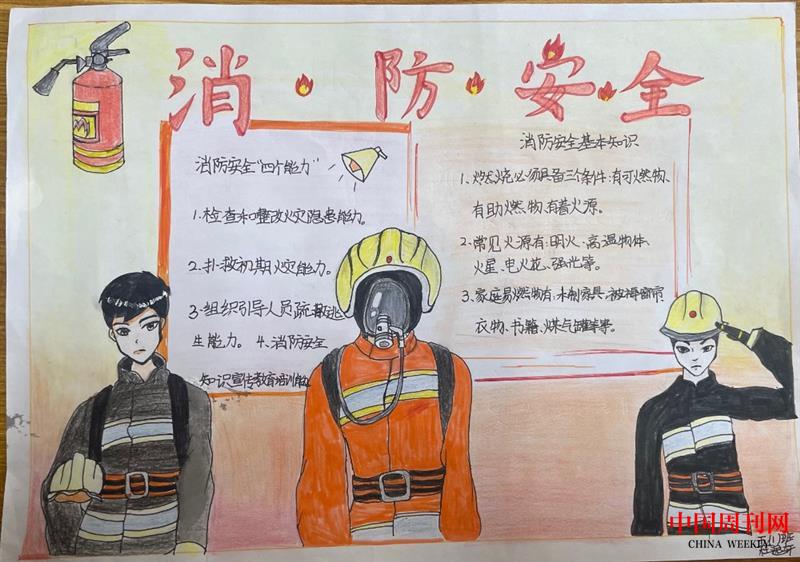 消·防·安全
消防安全“四个能力”
1.检查和整改火灾隐患能力。
2.扑救初期火灾能力。
3.组织引导人员疏散逃
生能力。 4、消防安全
知识宣传教育培训能
消防安全基本知识
1、燃烧必须具备三个条件:有可燃物、
有助燃物、有着火源。
2、常见火源有:明火、高温物体、
火星、电火花、强光等。
3、家庭易燃物有:木制家具、被褥窗帘、
衣物、书籍、煤气罐等。
中国周刊网
CHINA WEEKLY